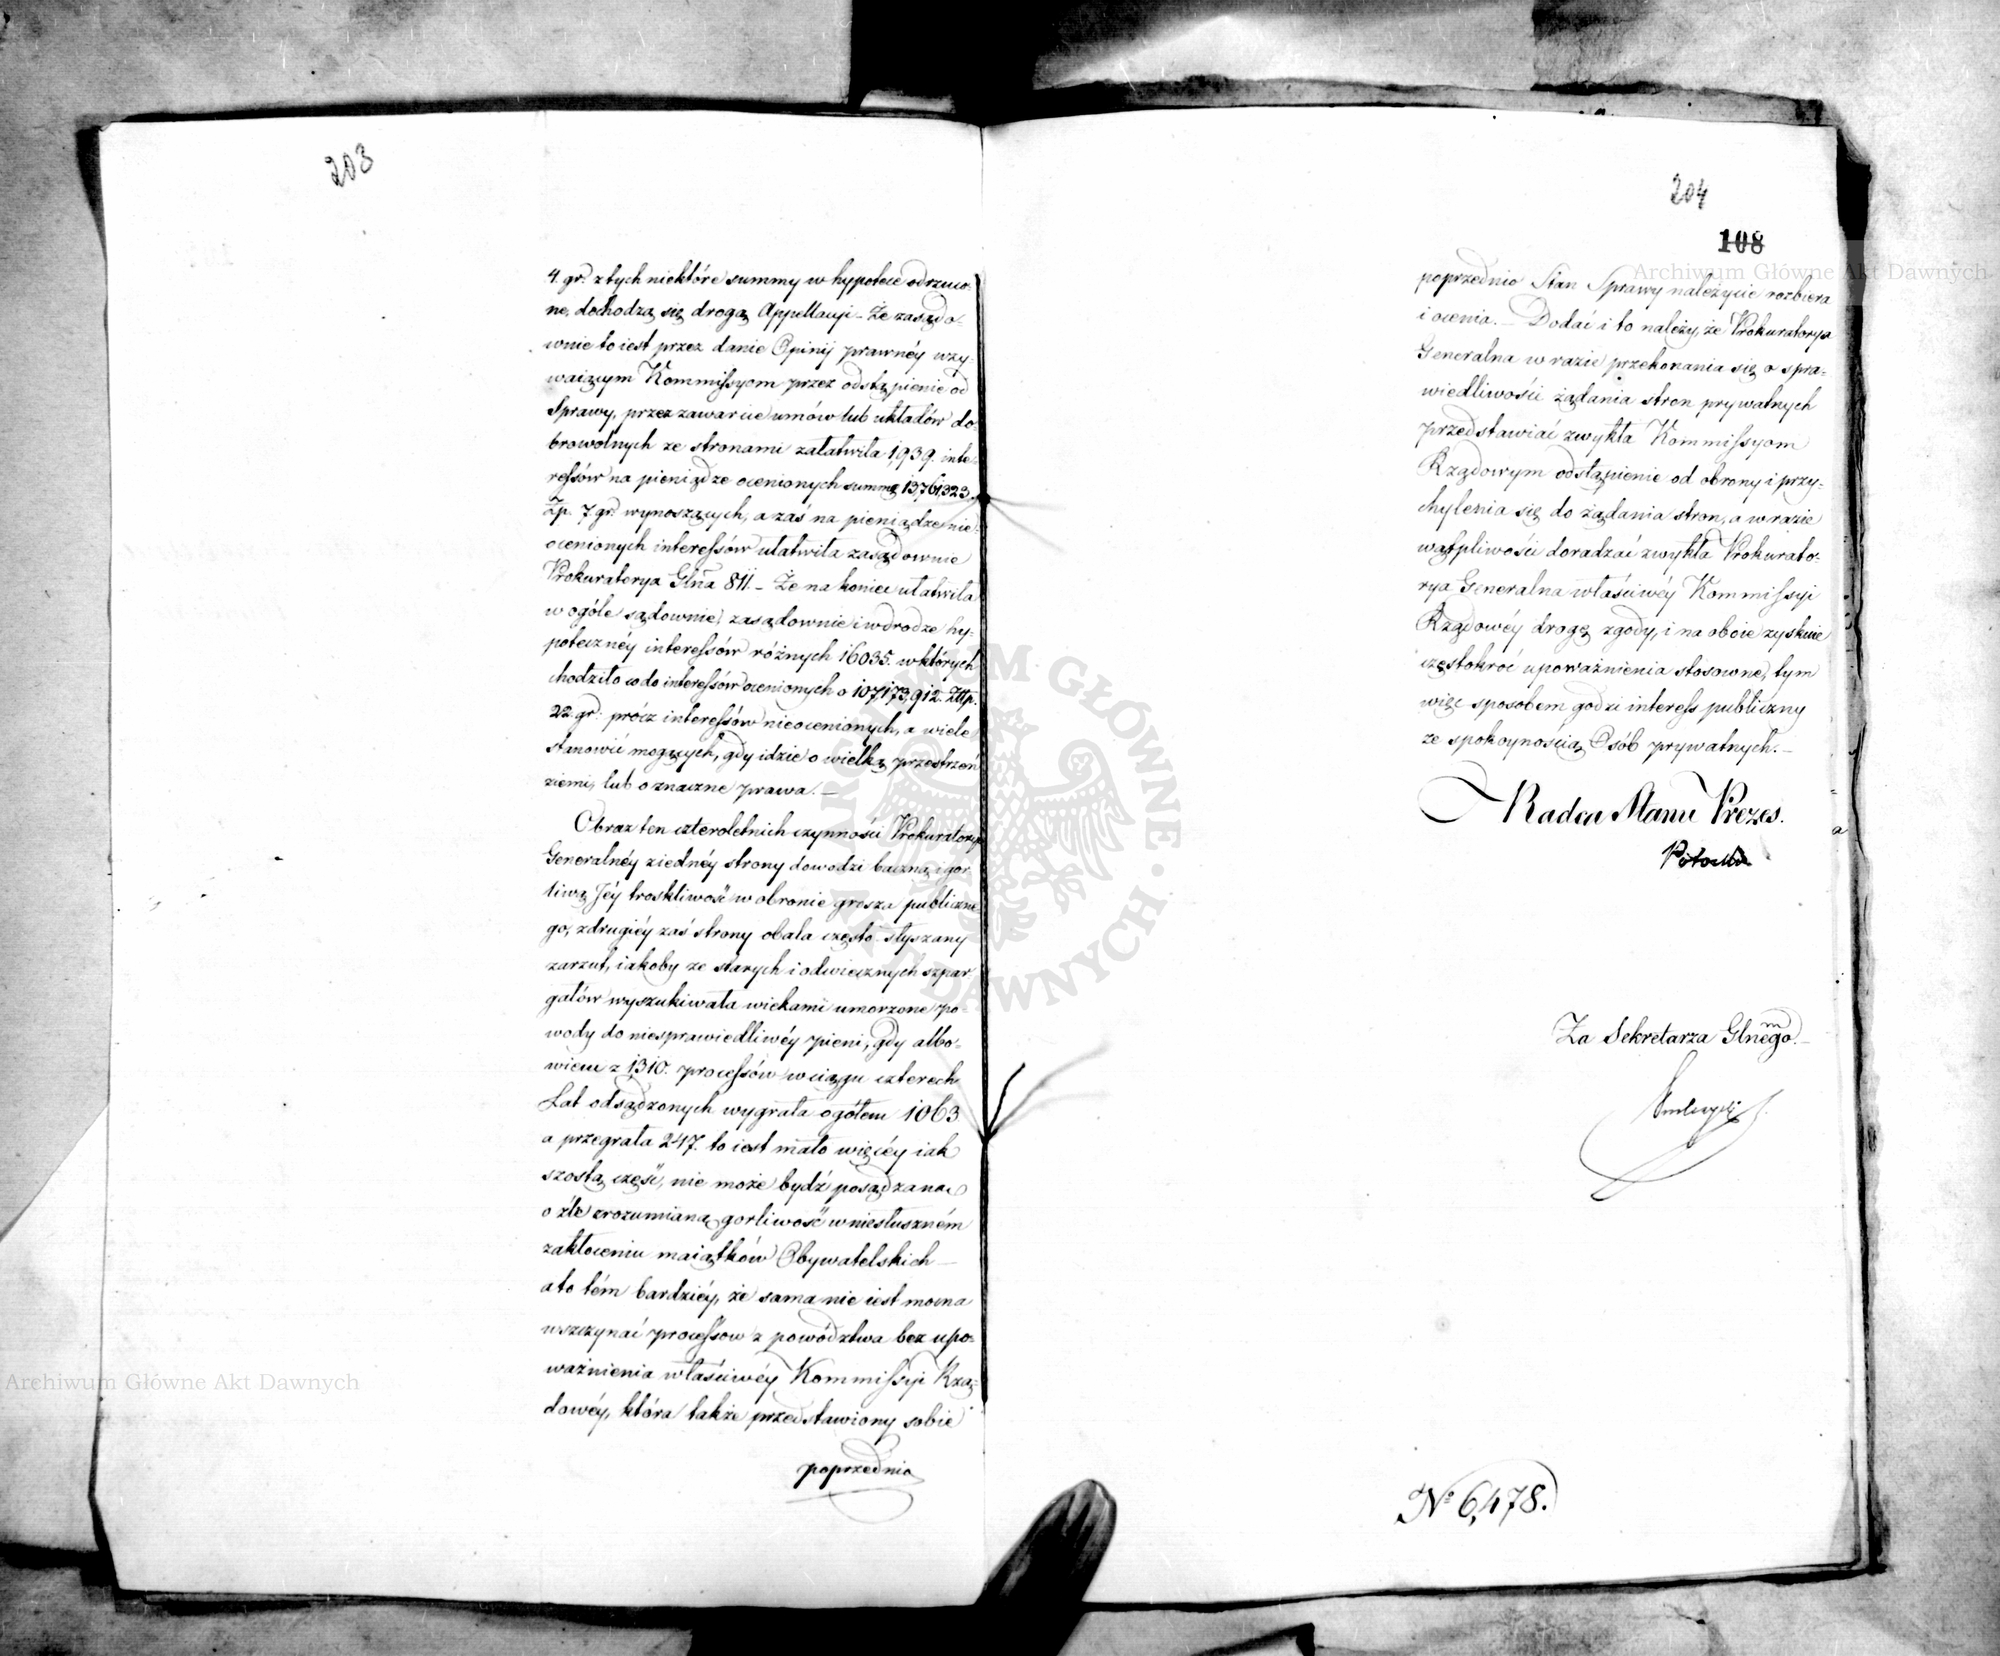 203
4. gr. z tych niektóre summy w hypotece odrzuco-
ne, dochodzą się drogą Appellacyi. – Że zasądo-
wnie to iest przez danie Opinij prawnéy wzy-
waiącym Kommissyom przez odstąpienie od
Sprawy, przez zawarcie umów lub układów do-
browolnych ze stronami załatwiła 1,939. inte-
ressów na pieniądze ocenionych summę 13,761,323.
Zp. 7. gr. wynoszących, a zaś na pieniądze nie-
ocenionych interessów ułatwiła zasądownie
Prokuratorya Glna 811. – Że na koniec ułatwiła
w ogóle sądownie, zasądownie i w drodze hy-
potecznéy interessów różnych 16035. w których
chodziło co do interessów ocenionych o 107,173,912. Złtp.
22. gr: prócz interessów nieocenionych, a wiele
stanowić mogących, gdy idzie o wielką przestrzeń
ziemi, lub o znaczne prawa. –
Obraz ten czteroletnich czynności Prokuratoryi
Generalnéy z iednéy strony dowodzi baczną i gor-
liwą Jéy troskliwość w obronie grosza publiczne-
go, z drugiéy zaś strony obala często słyszany
zarzut, iakoby ze starych i odwiecznych szpar-
gałów wyszukiwała wiekami umorzone po-
wody do niesprawiedliwéy pieni, gdy albo-
wiem z 1310. processów w ciągu czterech
Lat odsądzonych wygrała ogółem 1063
a przegrała 247. to iest mało więcéy iak
szostą część, nie może bydź posądzana
o źle zrozumianą gorliwość w niesłuszném
zakłóceniu maiątków Obywatelskich –
a to tém bardziéy, że sama nie iest mocna
wszczynać processow z powództwa bez upo-
ważnienia właściwéy Kommissyi Rzą-
dowéy, która także przedstawiony sobie
poprzednio
204
108
poprzednio Stan Sprawy należycie rozbiera
i ocenia. – Dodać i to należy, że Prokuratorya
Generalna w razie przekonania się o spra-
wiedliwości żądania stron prywatnych
przedstawiać zwykła Kommissyom
Rządowym odstąpienie od obrony i przy-
chylenia się do żądania stron, a w razie
wątpliwości doradzać zwykła Prokurato-
rya Generalna właściwéy Kommissyi
Rządowéy drogę zgody, i na oboie zyskuie
częstokroć upoważnienia stosowne, tym
więc sposobem godzi interess publiczny
ze spokoynością Osób prywatnych. –
Radca Stanu Prezes.
Za Sekretarza Glnego.
No 6,478.
Archiwum Główne Akt Dawnych
Archiwum Główne Akt Dawnych
ARCHIWUM GŁÓWNE AKT DAWNYCH